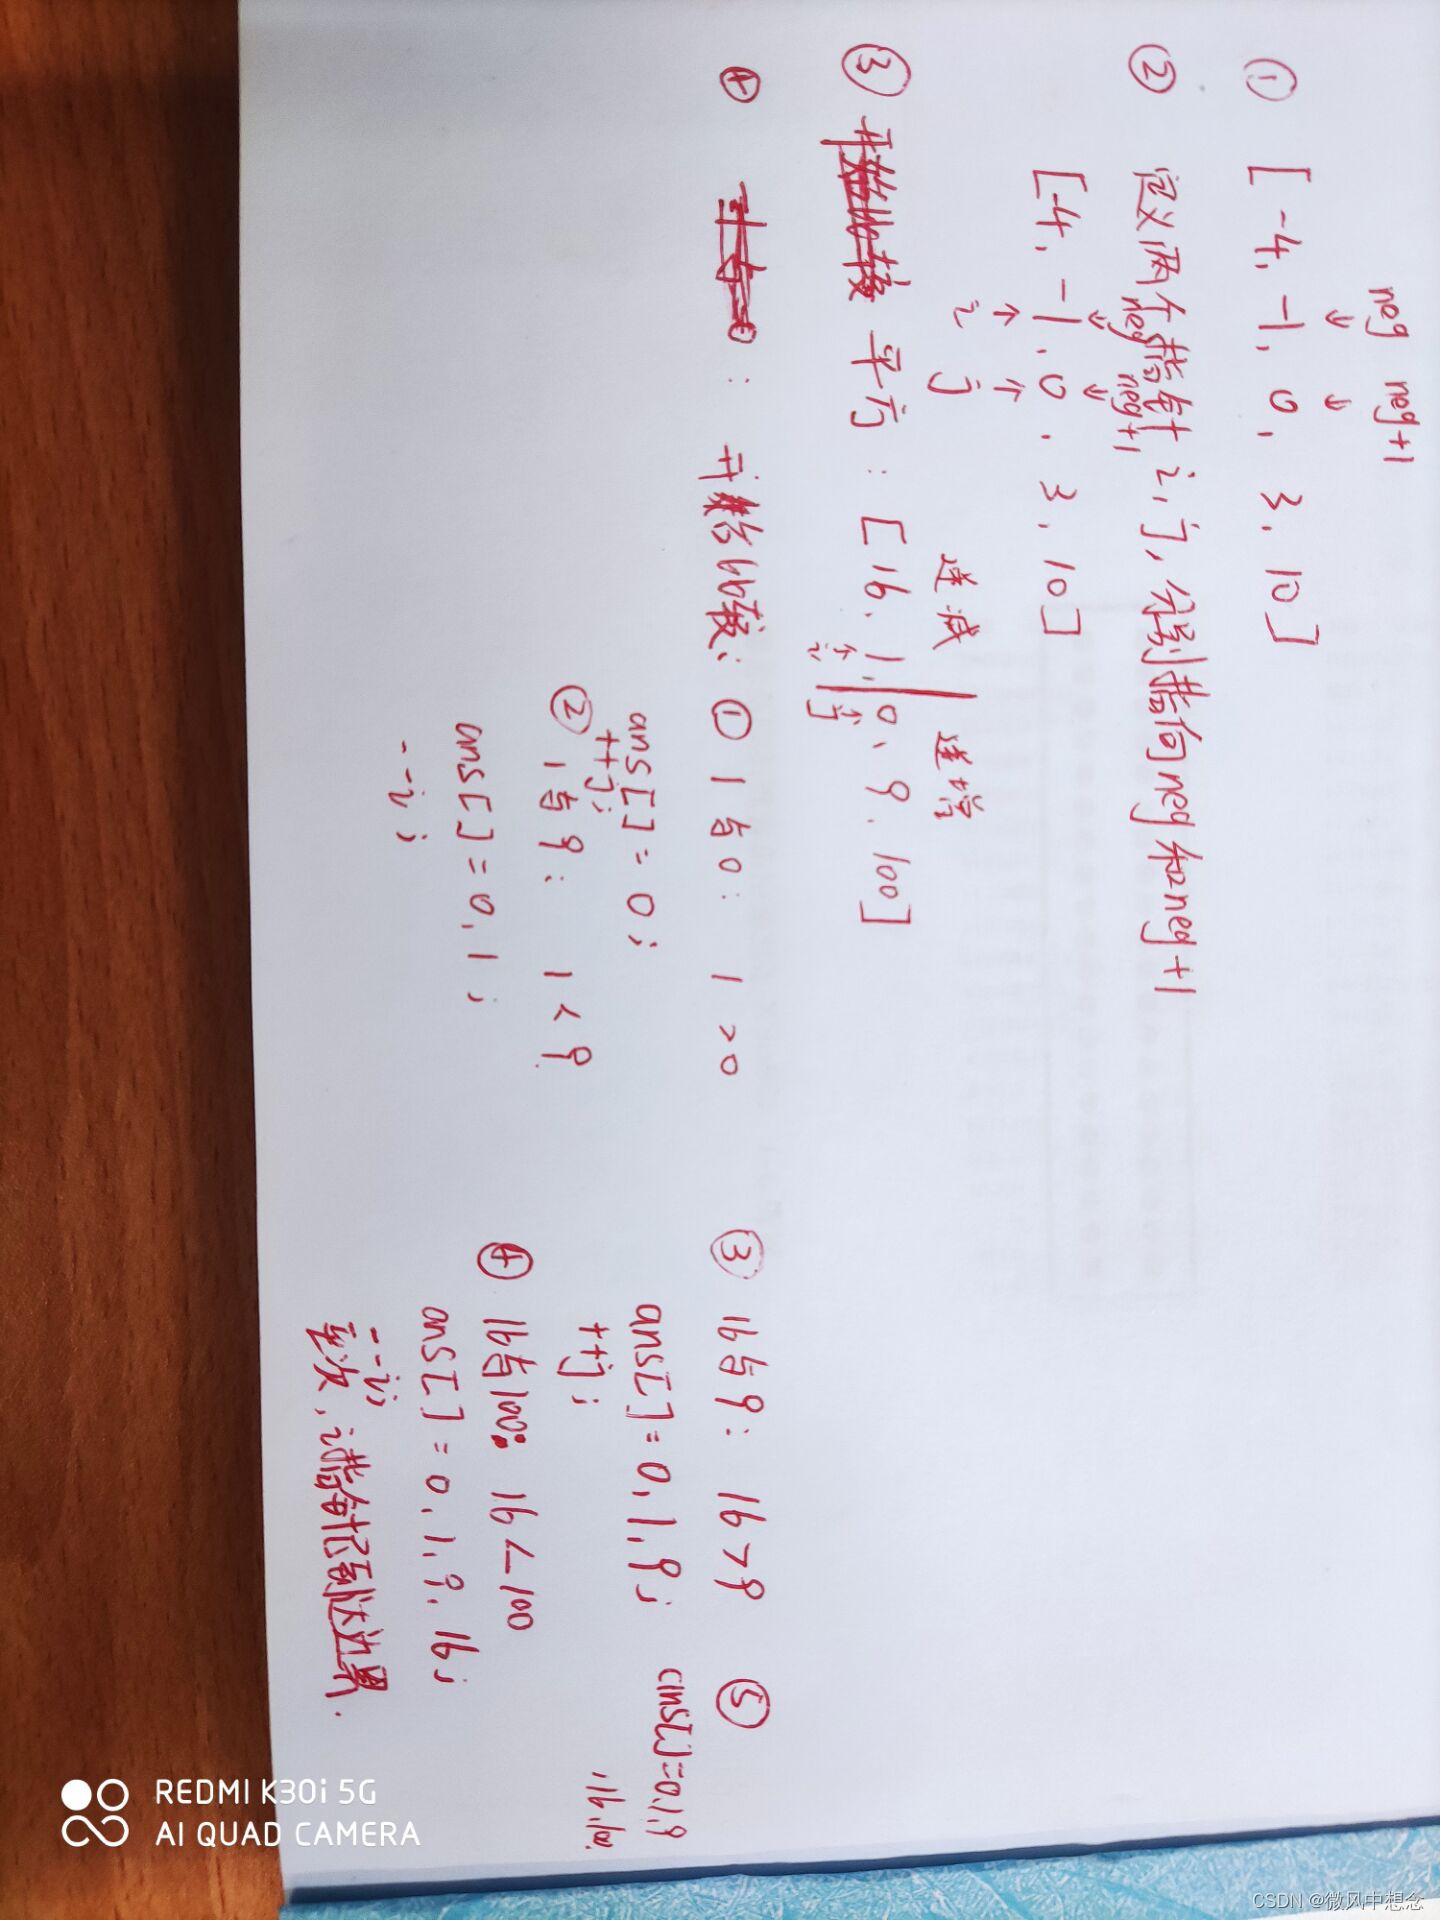 neg neg+1
↓ ↓
① [-4, -1, 0, 3, 10]
② 定义两个指针 i, j, 分别指向neg和neg+1
neg neg+1
↓ ↓
[-4, -1, 0, 3, 10]
↑ ↑
i j
递减 递增
③ 开始比较 平方: [16, 1, 0, 9, 100]
↑ ↑
i j
④ : 开始比较: ① 1与0: 1>0
ans[]=0;
++j;
② 1与9: 1<9
ans[]=0,1;
--i;
③ 16与9: 16>9
ans[]=0,1,9;
++j;
④ 16与100: 16<100
ans[]=0,1,9,16;
--i;
至次, i指针已到达边界.
⑤
ans[]=0,1,9
,16,100
REDMI K30i 5G
AI QUAD CAMERA
CSDN @微风中想念